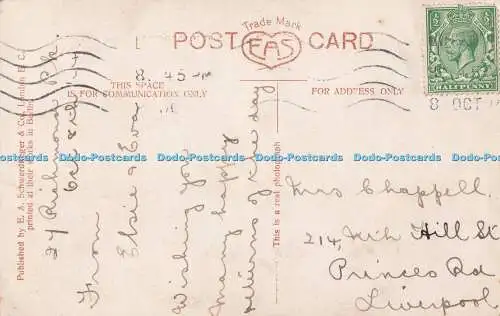 Trade Mark
EAS
POST CARD
HALFPENNY
8. 45 PM
8 OCT
THIS SPACE
IS FOR COMMUNICATION ONLY
FOR ADDRESS ONLY
Published by E. A. Schwerdtfeger & Co., London E.C.
printed at their works in Berlin
This is a real photograph
27 Richmond Pk.
Oct 8th
From
Elsie & Eva
Wishing you
many happy
returns of the day
Mrs Chappell.
214, Hill St
Princes Rd
Liverpool
Dodo-Postcards Dodo-Postcards Dodo-Postcards Dodo-Postcards Dodo-Postcards